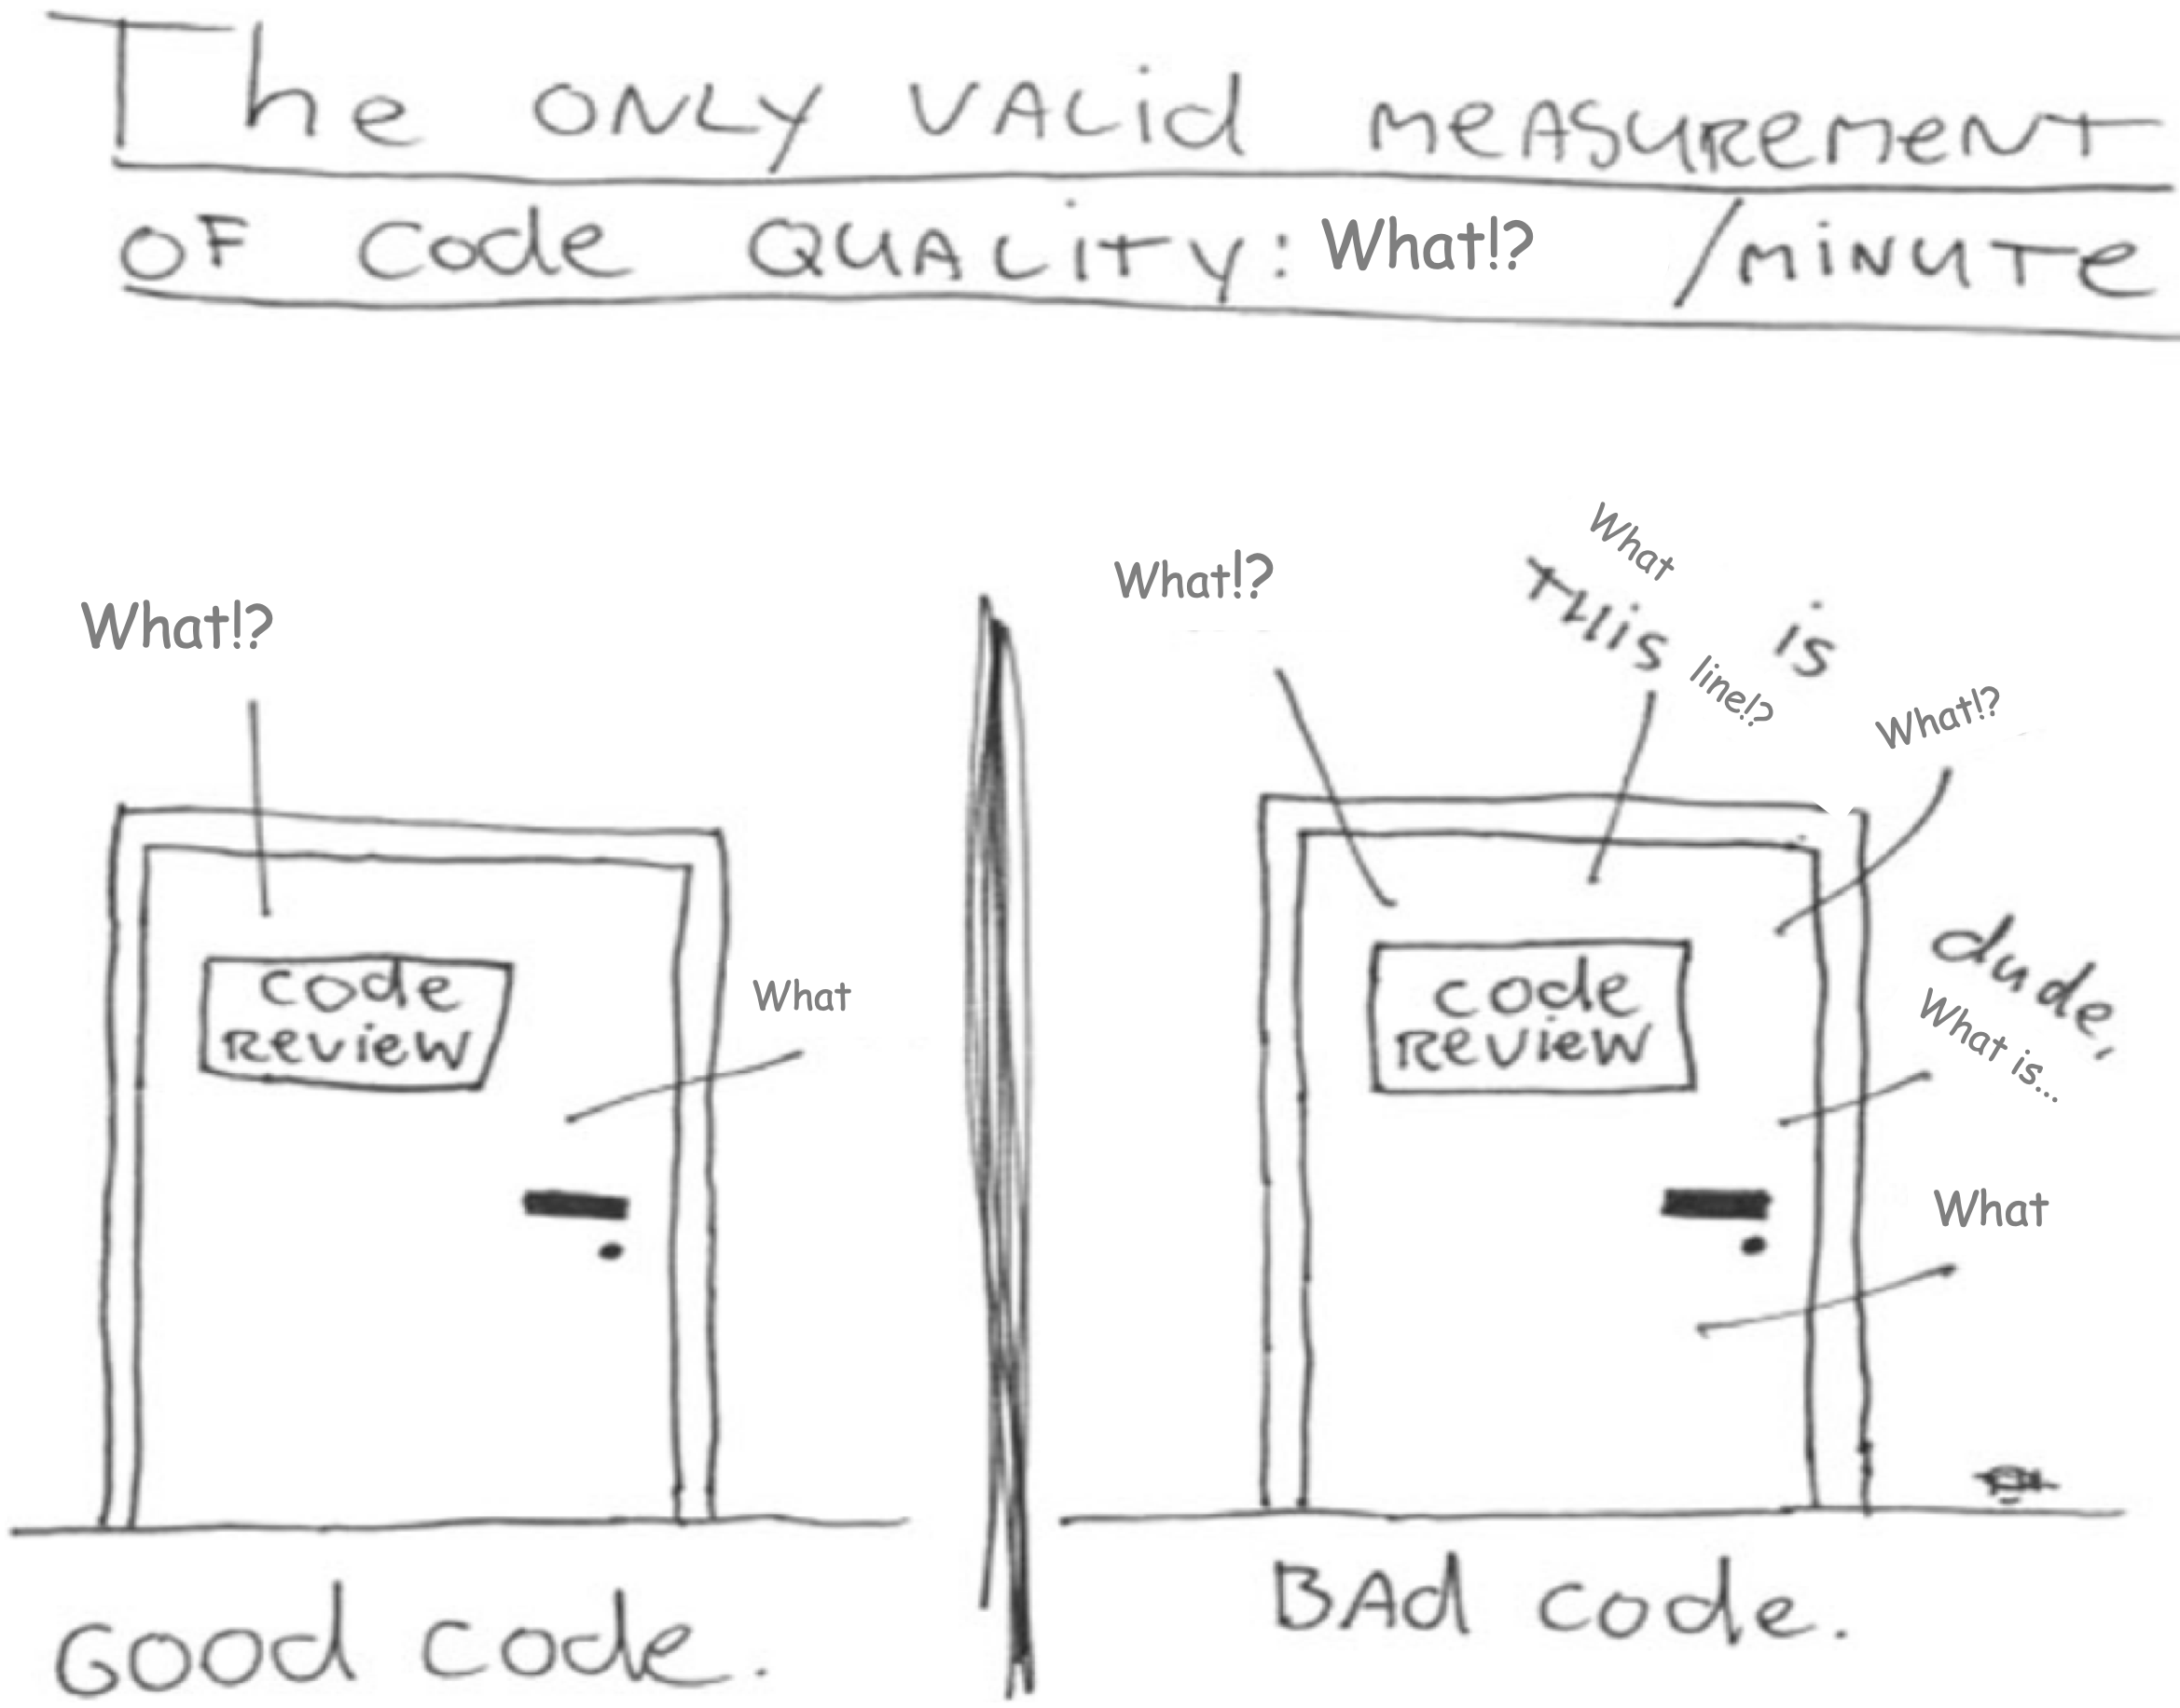 The ONLY VALid MEASUREMENT
OF Code QUALITY: What!? /MINUTE
What!?
code
REVIEW
What
Good code.
What!?
What
THis is
line!?
What!?
code
REVIEW
dude,
What is...
What
BAd code.